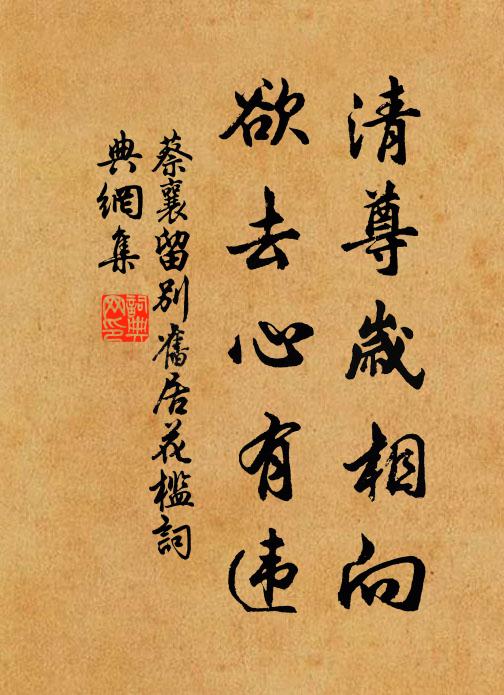 清尊歲相向
欲去心有违
蔡襄留別舊居花檻詞
典網集
詞典
网印